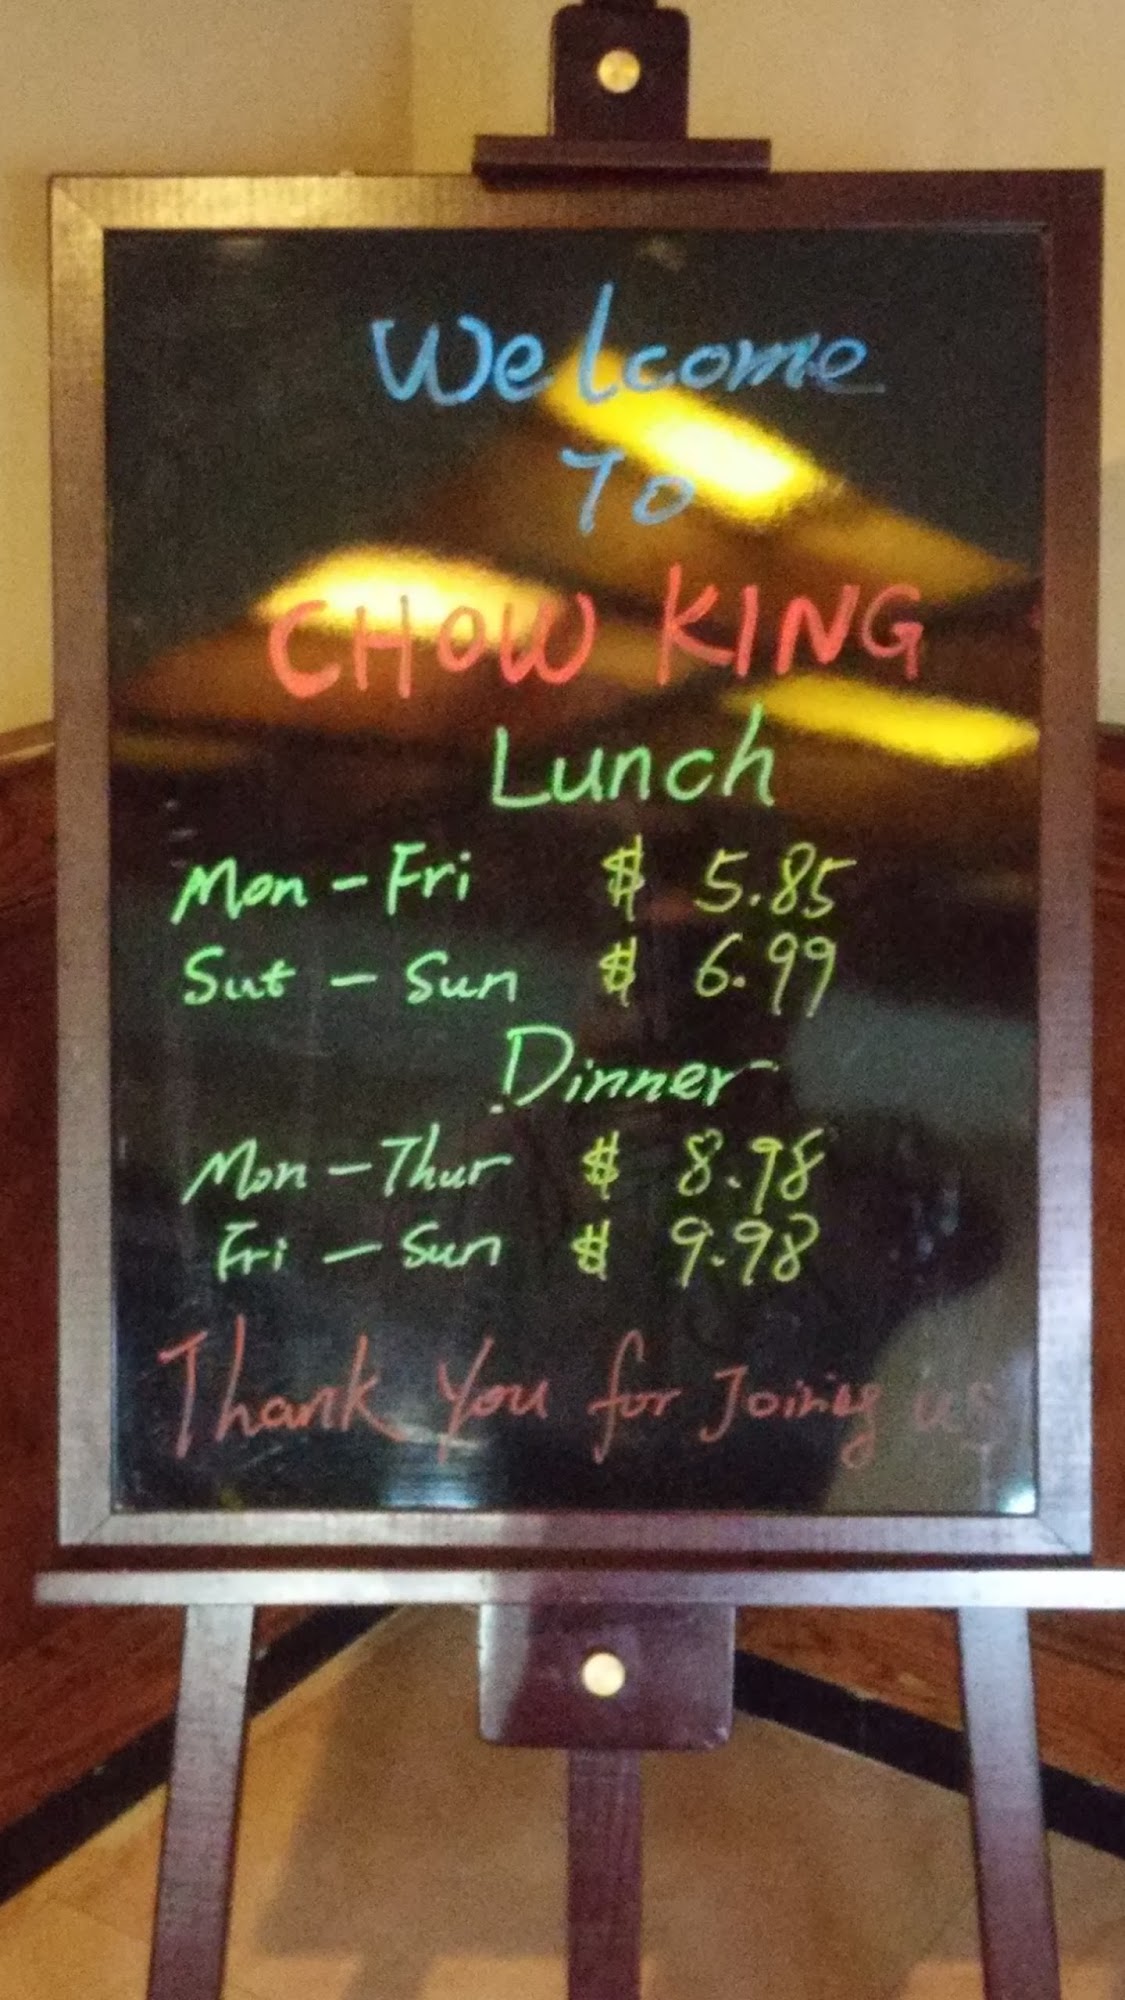 Welcome
To
CHOW KING
Lunch
Mon - Fri $ 5.85
Sut - Sun $ 6.99
Dinner
Mon - Thur $ 8.98
Fri - Sun $ 9.98
Thank You for Joining us